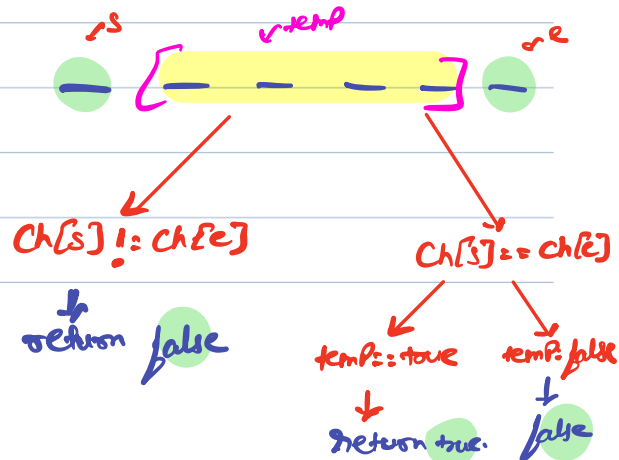 s temp e
Ch[s] != ch[e] Ch[s] == ch[e]
return false
temp == true temp = false
return true. false